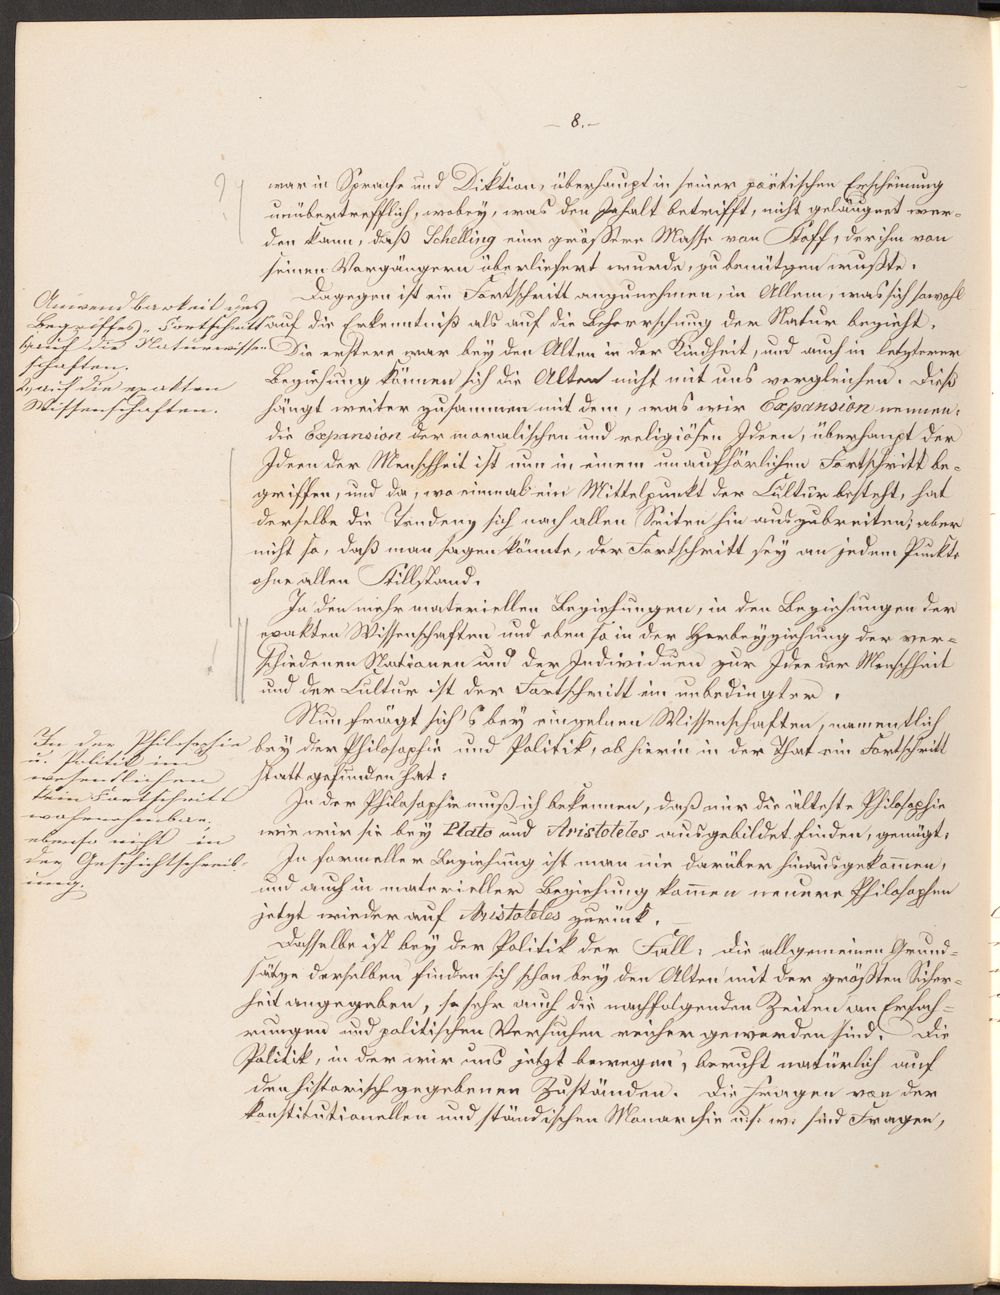 - 8. -
war in Sprache und Diktion, überhaupt in seiner poëtischen Erscheinung
unübertrefflich, wobey, was den Inhalt betrifft, nicht geläugnet wer-
den kann, daß Schelling eine größere Masse von Stoff, der ihm von
seinen Vorgängern überliefert wurde, zu benützen wußte.
Dagegen ist ein Fortschritt anzunehmen, in Allem, was sich sowohl
auf die Erkenntniß als auf die Beherrschung der Natur bezieht.
Die erstere war bey den Alten in der Kindheit, und auch in letzterer
Beziehung können sich die Alten nicht mit uns vergleichen. Dieß
hängt weiter zusammen mit dem, was wir Expansion nennen:
die Expansion der moralischen und religiösen Ideen, überhaupt der
Ideen der Menschheit ist nun in einem unaufhörlichen Fortschritt be-
griffen, und da, wo einmal ein Mittelpunkt der Cultur besteht, hat
derselbe die Tendenz sich nach allen Seiten hin auszubreiten; aber
nicht so, daß man sagen könnte, der Fortschritt sey an jedem Punkte
ohne allen Stillstand.
In den mehr materiellen Beziehungen, in den Beziehungen der
exakten Wissenschaften und eben so in der Herbeyziehung der ver-
schiedenen Nationen und der Individuen zur Idee der Menschheit
und der Cultur ist der Fortschritt ein unbedingter.
Nun frägt sich's bey einzelnen Wissenschaften, namentlich
bey der Philosophie und Politik, ob hierin in der That ein Fortschritt
statt gefunden hat:
In der Philosophie muß ich bekennen, daß mir die älteste Philosophie
wie wir sie bey Plato und Aristoteles ausgebildet finden, genügt.
In formeller Beziehung ist man nie darüber hinausgekommen,
und auch in materieller Beziehung kommen neuere Philosophen
jetzt wieder auf Aristoteles zurück.
Dasselbe ist bey der Politik der Fall: die allgemeinen Grund-
sätze derselben finden sich schon bey den Alten mit der größten Sicher-
heit angegeben, so sehr auch die nachfolgenden Zeiten an Erfah-
rungen und politischen Versuchen reicher geworden sind. Die
Politik, in der wir uns jetzt bewegen, beruht natürlich auf
den historisch gegebenen Zuständen. Die Fragen von der
konstitutionellen und ständischen Monarchie u. s. w. sind Fragen,
Anwendbarkeit des
Begriffes „Fortschritt
auf die Naturwissen-
schaften.
auf die exakten
Wissenschaften.
In der Philosophie
u. Politik im
wesentlichen
kein Fortschritt
wahrnehmbar,
ebenso nicht in
der Geschichtschreib-
ung.